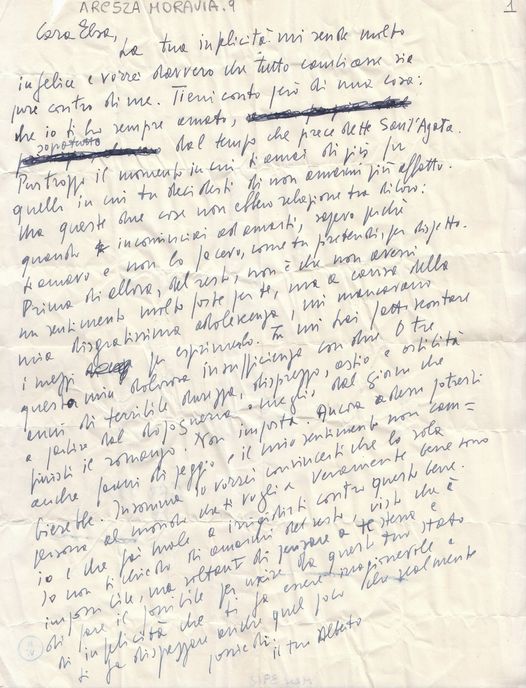 ARESZA MORAVIA.9
1
Cara Elsa,
La tua infelicità mi rende molto
infelice e vorrei davvero che tutto cambiasse sia
pure contro di me. Tieni conto però di una cosa:
che io ti ho sempre amato,
sopratutto dal tempo che precedette Sant'Agata.
Purtroppo il momento in cui ti amai di più fu
quello in cui tu decidesti di non avermi più affetto.
Ma queste due cose non ebbero relazione tra di loro:
quando incominciai ad amarti, sapevo perché
ti amavo e non lo facevo, come tu pretendi, per dispetto.
Prima di allora, del resto, non è che non avessi
un sentimento molto forte per te, ma a causa della
mia disgraziatissima adolescenza, mi mancavano
i mezzi per esprimerlo. Tu mi hai fatto scontare
questa mia dolorosa insufficienza con due o tre
anni di terribile durezza, disprezzo, astio e ostilità
a partire dal dopoguerra o meglio dal giorno che
finisti il romanzo. Non importa. Ancora adesso potresti
anche farmi di peggio e il mio sentimento non cam=
bierebbe. Insomma io vorrei convincerti che la sola
persona al mondo che ti voglia veramente bene sono
io e che fai male a irrigidirti contro questo bene.
Io non ti chiedo di amarmi del resto, visto che è
impossibile, ma soltanto di pensare a te stessa e
di fare il possibile per uscire da questo tuo stato
di infelicità che ti fa essere irragionevole e
ti fa disprezzare anche quel poco che realmente
possiedi.
il tuo Alberto